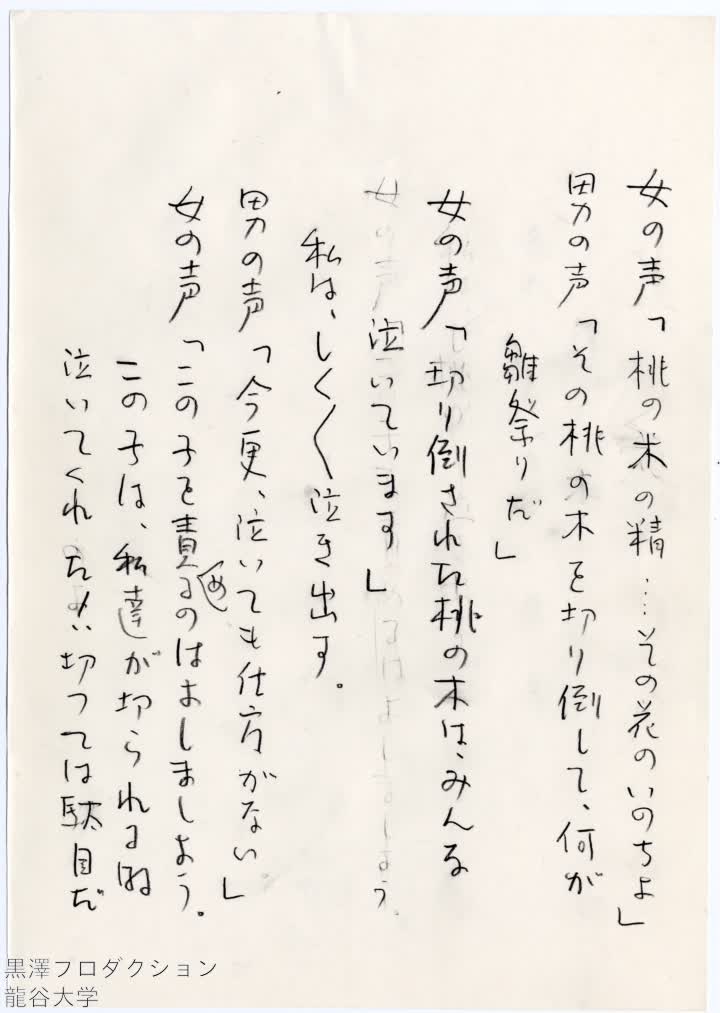 女の声「桃の木の精…その花のいのちよ」
男の声「その桃の木を切り倒して、何が
雛祭りだ」
女の声「切り倒された桃の木は、みんな
泣いています」
私は、しく〳〵泣き出す。
男の声「今更、泣いても仕方がない」
女の声「この子を責めるのはよしましよう。
この子は、私達が切られる時
泣いてくれた!!切つては駄目だ
黒澤プロダクション
龍谷大学